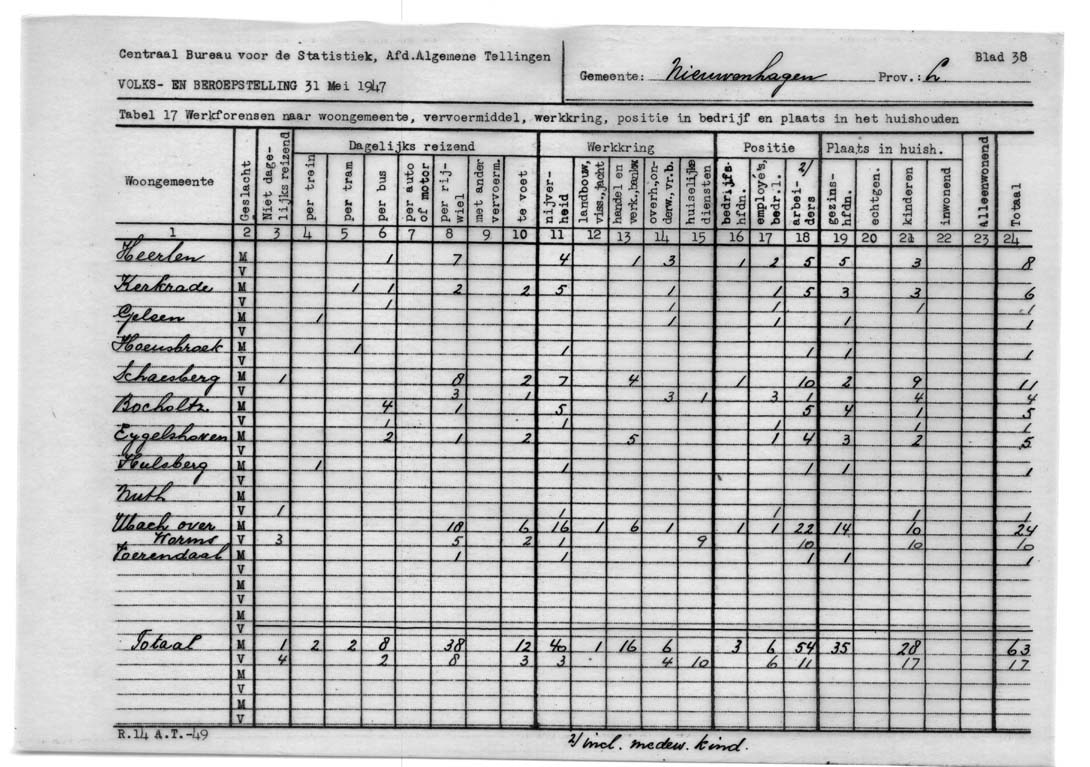 Centraal Bureau voor de Statistiek, Afd.Algemene Tellingen
VOLKS- EN BEROEPSTELLING 31 Mei 1947
Gemeente: Nieuwenhagen Prov.: L Blad 38
Tabel 17 Werkforensen naar woongemeente, vervoermiddel, werkkring, positie in bedrijf en plaats in het huishouden
Woongemeente Geslacht Niet dagelijks reizend Dagelijks reizend Werkkring Positie 2/ Plaats in huish. Alleenwonend Totaal
per trein per tram per bus per auto of motor per rijwiel met ander vervoerm. te voet nijverheid landbouw, viss.,jacht handel en verk.,bankw. overh.,onderw.,vr.b. huiselijke diensten bedrijfshfdn. employé's, bedr.l. arbeiders gezinshfdn. echtgen. kinderen inwonend
1 2 3 4 5 6 7 8 9 10 11 12 13 14 15 16 17 18 19 20 21 22 23 24
Heerlen M 1 7 4 1 3 1 2 5 5 3 8
V
Kerkrade M 1 1 2 2 5 1 1 5 3 3 6
V 1 1 1 1 1
Gelsen M 1 1 1 1 1
V
Hoensbroek M 1 1 1 1 1
V
Schaesberg M 1 8 2 7 4 1 10 2 9 11
V 3 1 3 1 3 1 4 4
Bocholtz M 4 1 5 5 4 1 5
V 1 1 1 1 1
Eygelshoven M 2 1 2 5 1 4 3 2 5
V
Hulsberg M 1 1 1 1 1
V
Nuth M
V 1 1 1 1 1
Ubach over M 18 6 16 1 6 1 1 1 22 14 10 24
Worms V 3 5 2 1 9 10 10 10
Voerendaal M 1 1 1 1 1
V
M
V
M
V
Totaal M 1 2 2 8 38 12 40 1 16 6 3 6 54 35 28 63
V 4 2 8 3 3 4 10 6 11 17 17
M
V
M
V
R.14 A.T.-49
2/ incl. medew. kind.